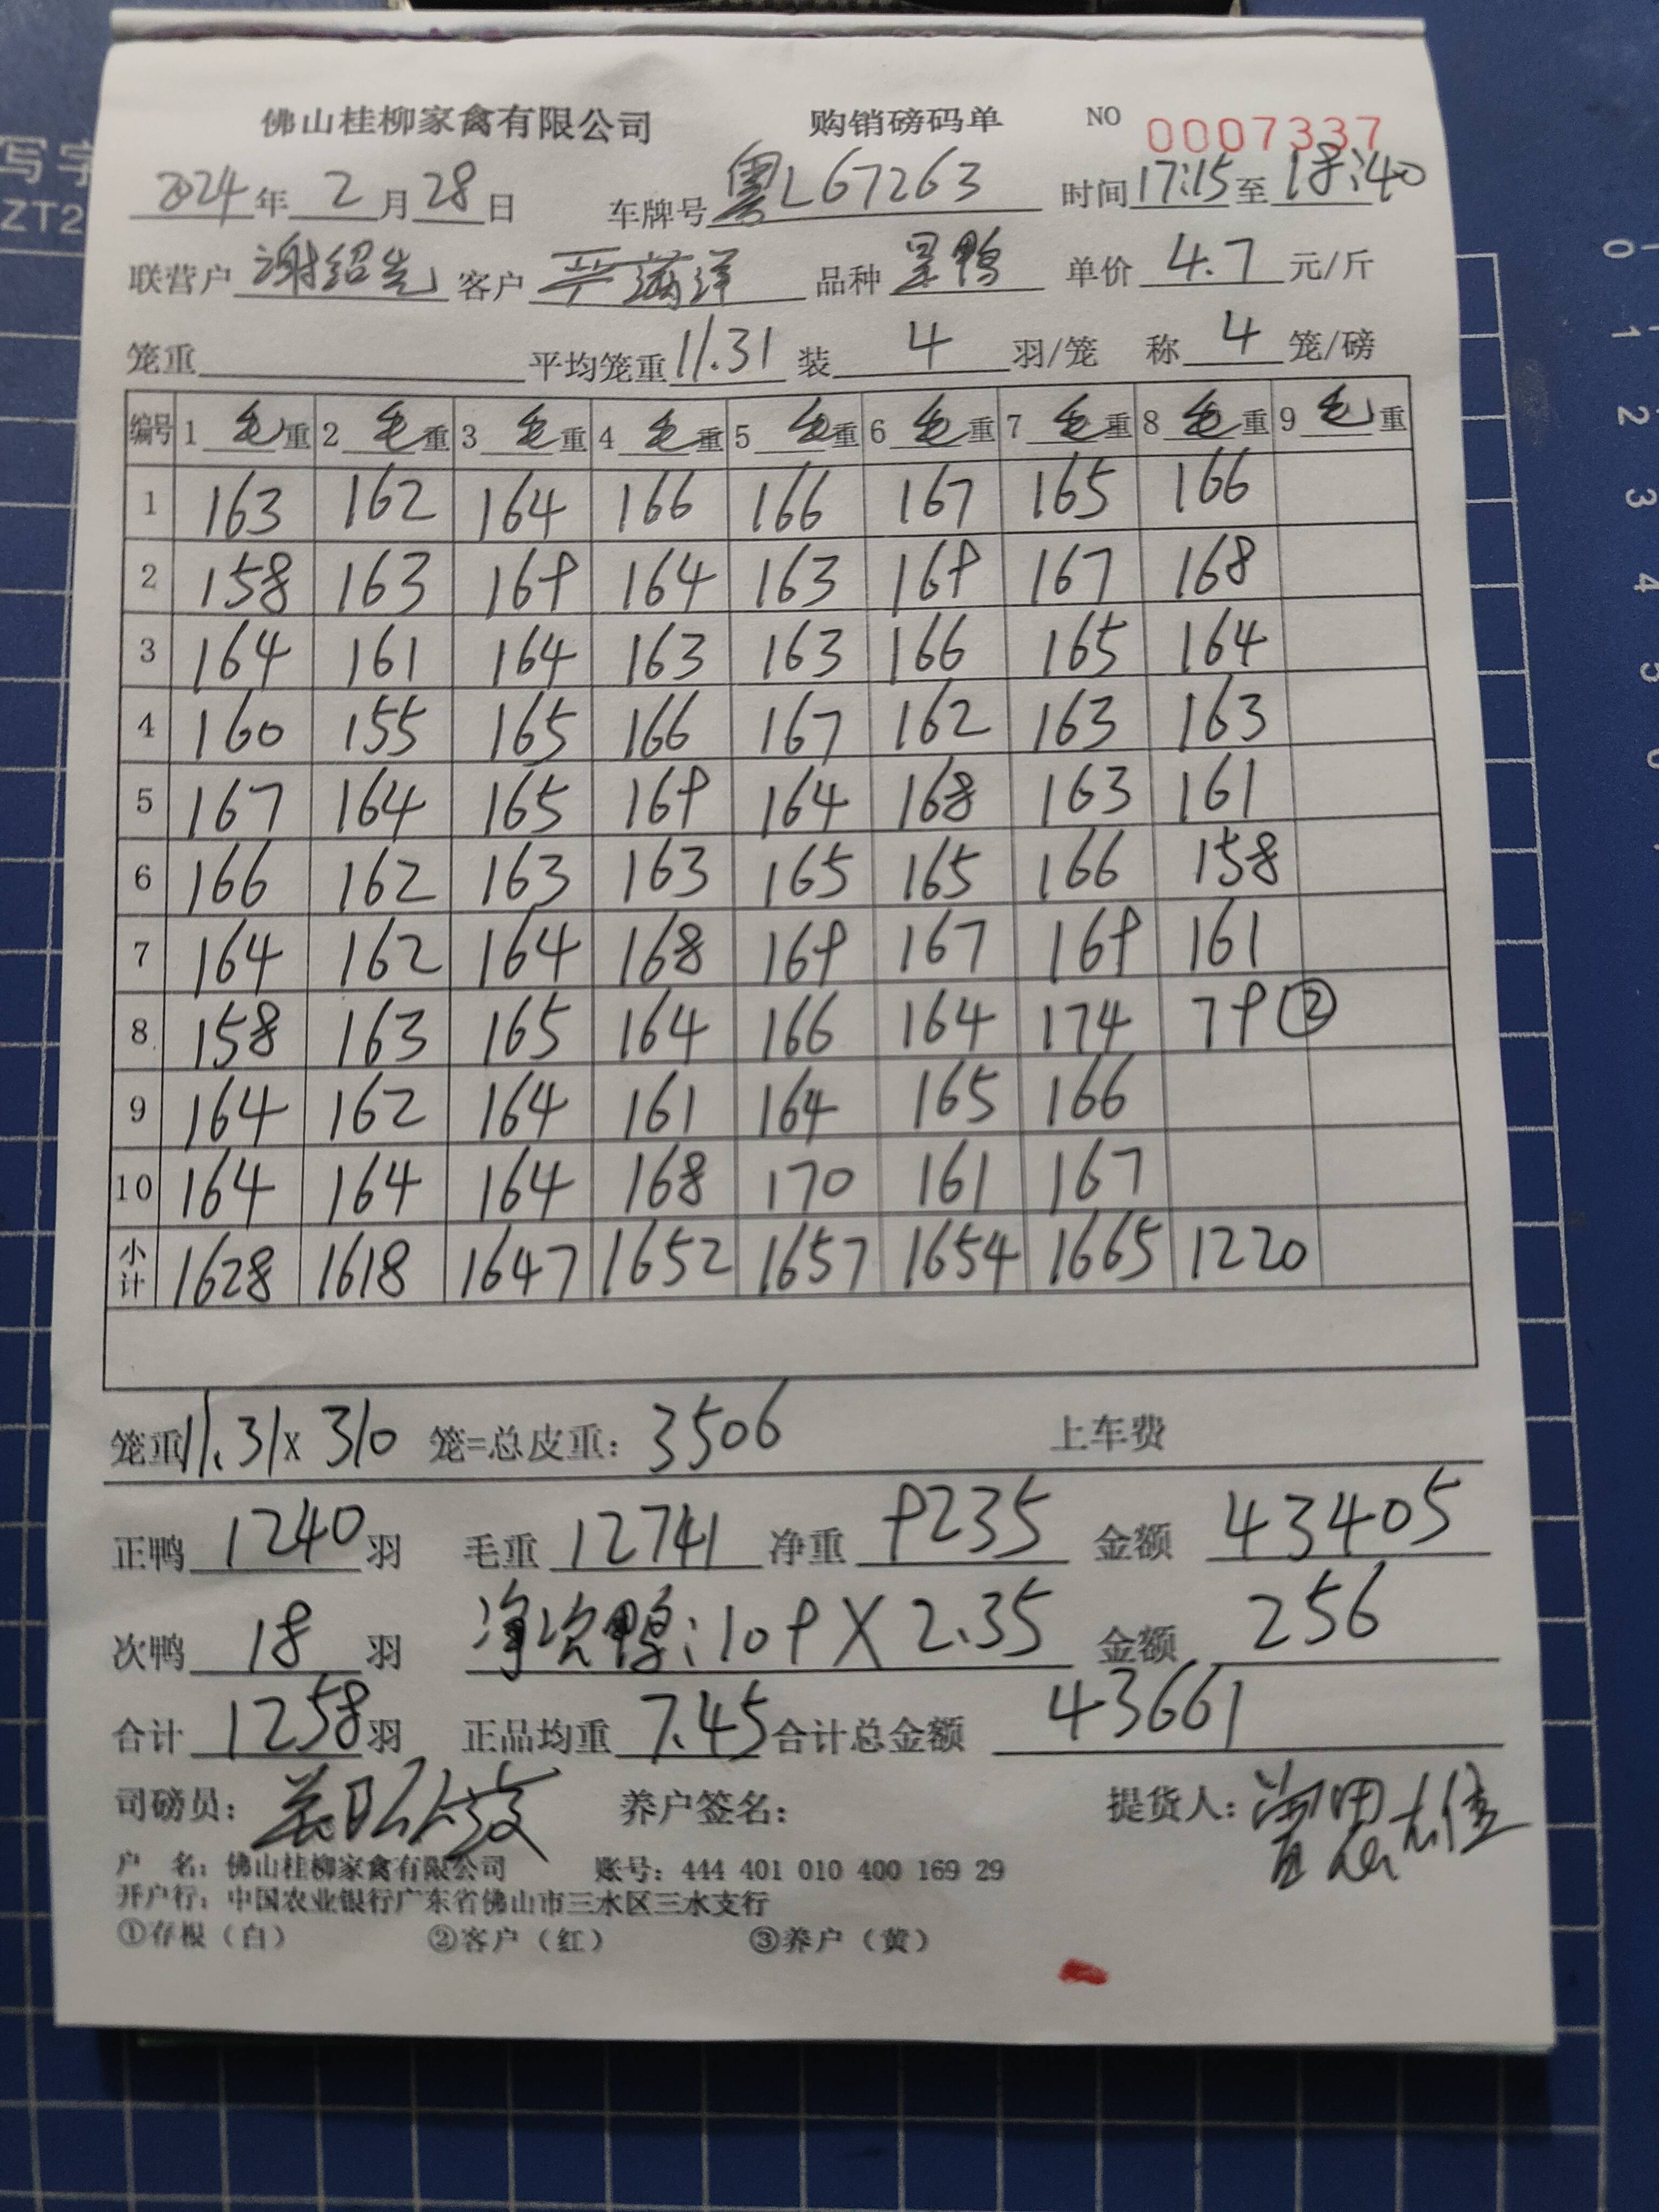 写字
ZT2
佛山桂柳家禽有限公司 购销磅码单 NO 0007337
2024年2月28日 车牌号 粤L67263 时间17:15至18:40
联营户 谢绍先 客户 严满洋 品种 旱鸭 单价 4.7 元/斤
笼重 平均笼重11.31 装 4 羽/笼 称 4 笼/磅
编号 1 毛重 2 毛重 3 毛重 4 毛重 5 毛重 6 毛重 7 毛重 8 毛重 9 毛重
1 163 162 164 166 166 167 165 166
2 158 163 169 164 163 169 167 168
3 164 161 164 163 163 166 165 164
4 160 155 165 166 167 162 163 163
5 167 164 165 169 164 168 163 161
6 166 162 163 163 165 165 166 158
7 164 162 164 168 169 167 169 161
8 158 163 165 164 166 164 174 79②
9 164 162 164 161 164 165 166
10 164 164 164 168 170 161 167
小计 1628 1618 1647 1652 1657 1654 1665 1220
笼重11.31x310 笼=总皮重: 3506 上车费
正鸭 1240 羽 毛重 12741 净重 9235 金额 43405
次鸭 18 羽 净次鸭:109X2.35 金额 256
合计 1258羽 正品均重 7.45 合计总金额 43661
司磅员: 养户签名: 提货人:
户 名: 佛山桂柳家禽有限公司 账号: 444 401 010 400 169 29
开户行: 中国农业银行广东省佛山市三水区三水支行
①存根（白） ②客户（红） ③养户（黄）
0
1
2
3
4
5